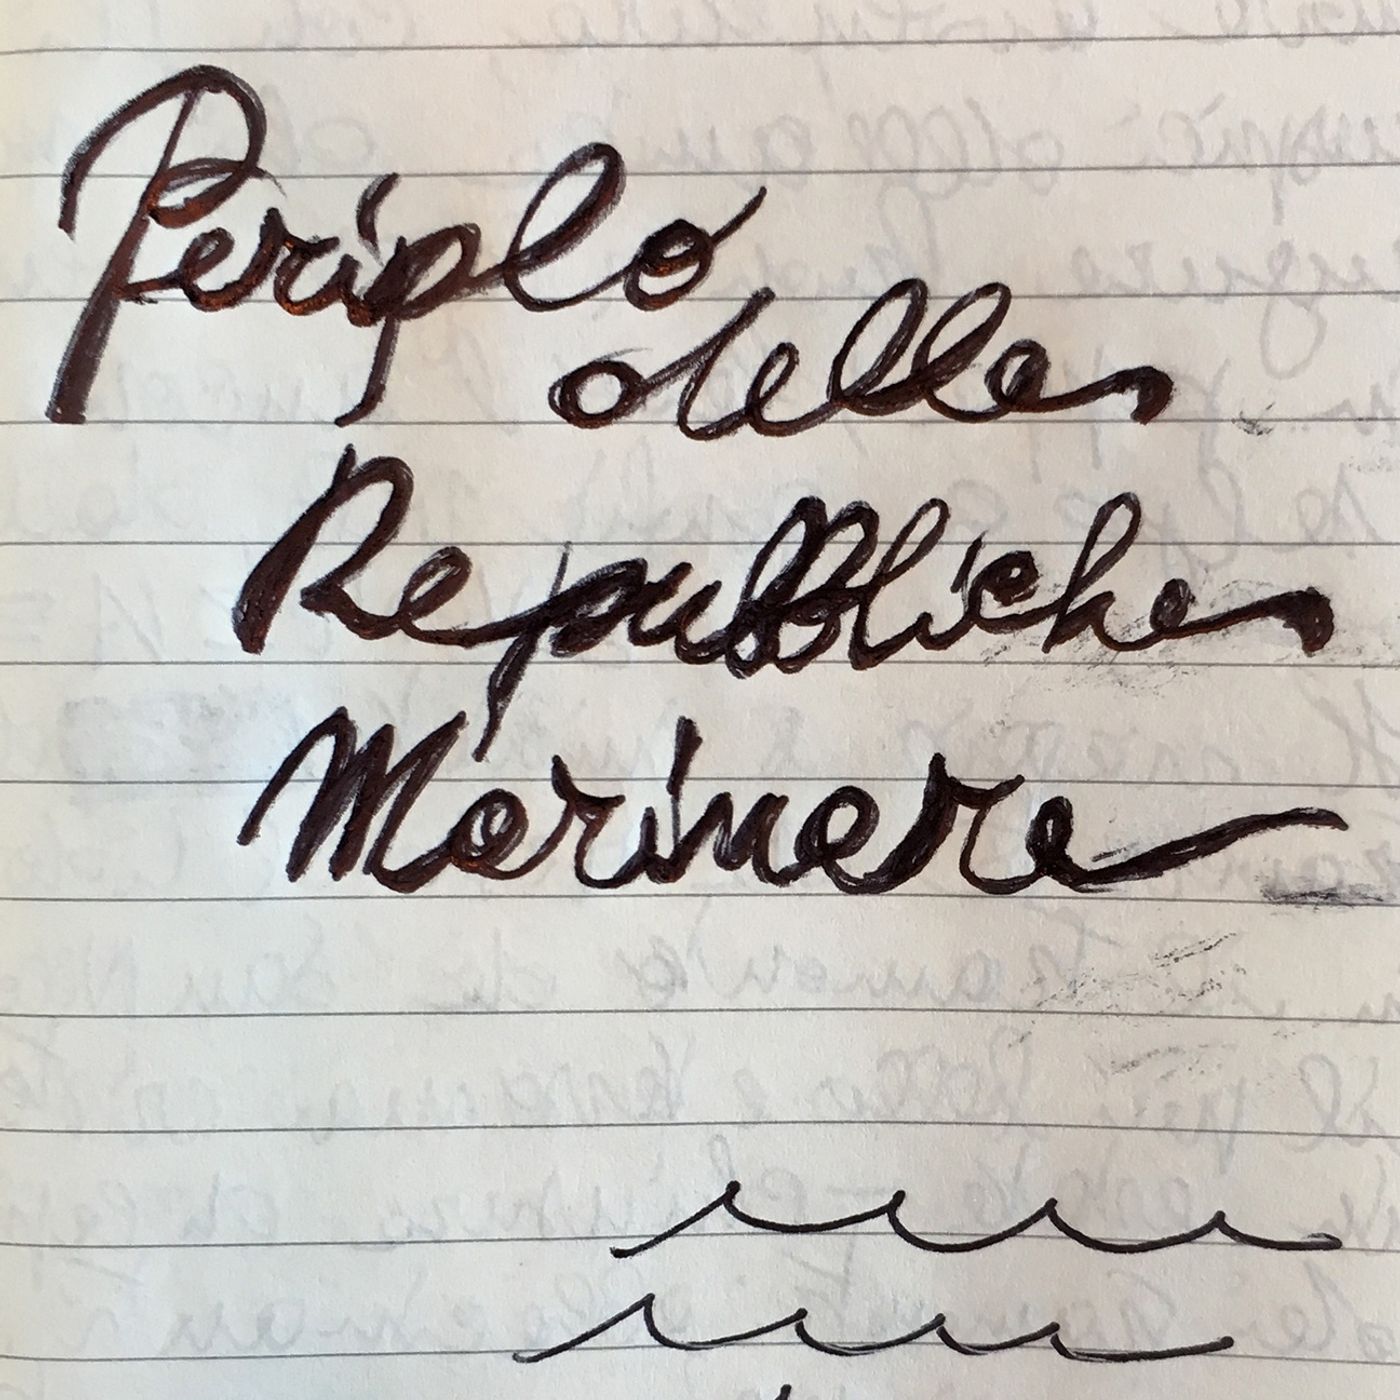 Periplo
delle
Repubbliche
Marinare